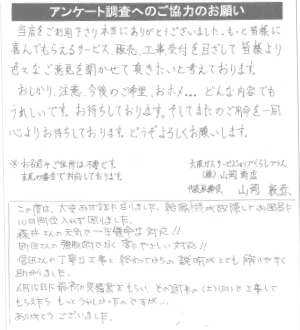 アンケート調査へのご協力のお願い
当店をご利用下さり本当にありがとうございました。もっと皆様に
喜んでもらえるサービス、販売、工事受付を目ざして皆様より
ご意見を聞かせて頂きたいと考えております。
おしかり、注意、今後のご希望、おホメ… どんな内容でも
うれしいです。お待ちしております。そしてまたのご用命を一同
心よりお待ちしております。どうぞよろしくお願いします。
※お名前やご住所は不要です。
大阪ガスサービスショップくらしプラん
(株)山岡商店
代表取締役 山岡
この度は、大変お世話になりました。給湯器が故障してお風呂に
10日間位入れず困りました。
さんの元気で一生懸命な対応!!
町田さんの 落とやさしい対応!!
さんの丁寧な工事と 終わってからの説明がとても解りやすく
助かりました。
6月15日に最初の見積書をもらい、その
もらえたら もっとうれしかったのですが…
ありがとうございました。